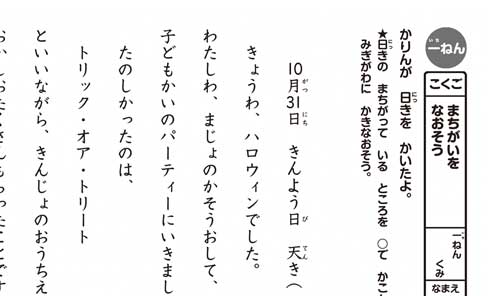 一ねん
こくご
まちがいを
なおそう
一ねん
くみ
なまえ
かりんが 日きを かいたよ。
★日きの まちがって いる ところを ○で かこ
みぎがわに かきなおそう。
10月31日 きんよう日 天き(
きょうわ、ハロウィンでした。
わたしわ、まじょのかそうおして、
子どもかいのパーティーにいきまし
たのしかったのは、
トリック・オア・トリート
といいながら、きんじょのおうちえ